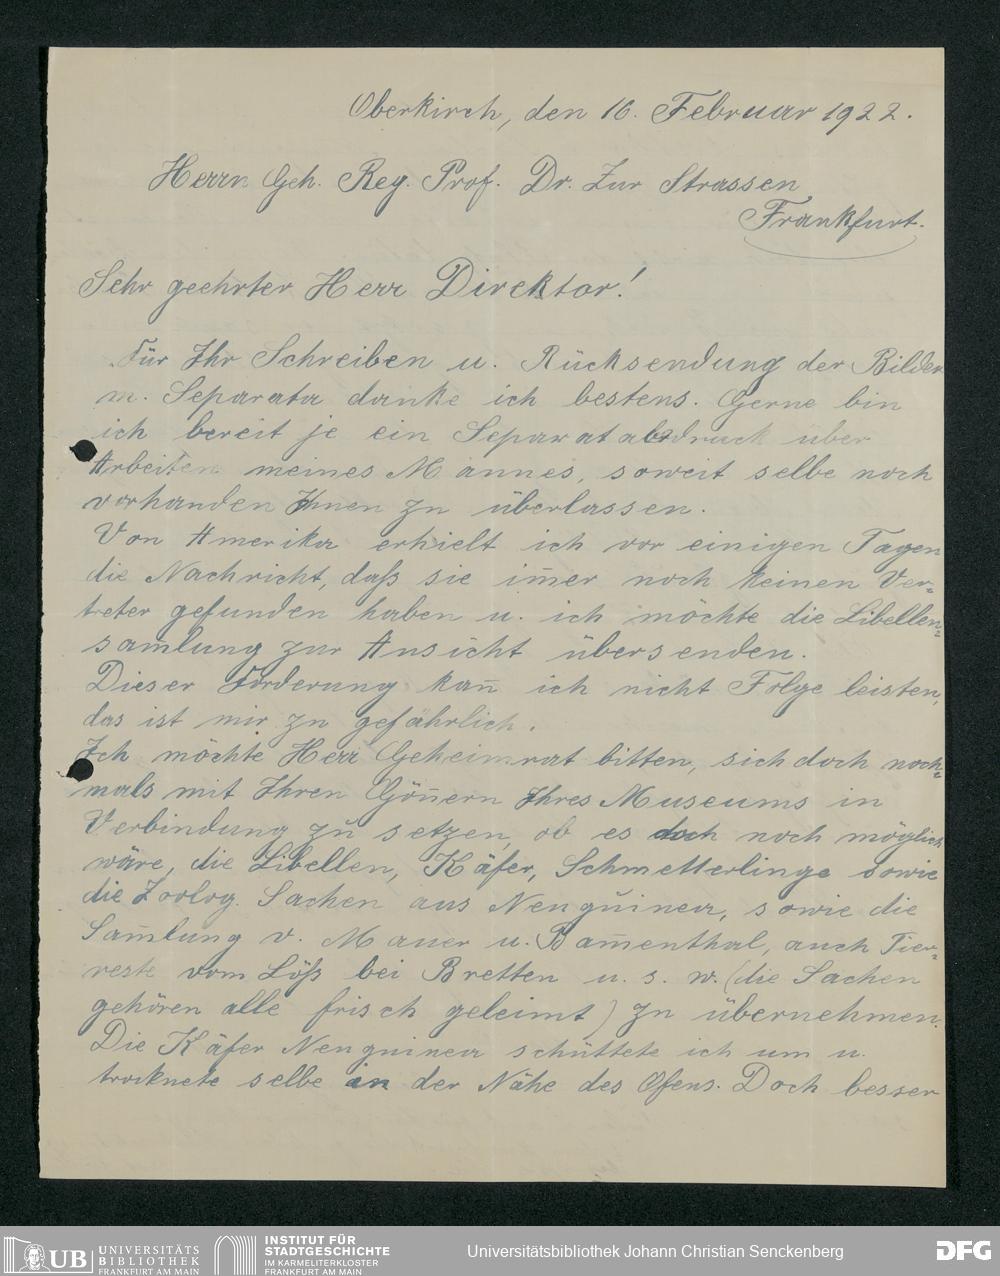 Oberkirch, den 16. Februar 1922.
Herrn Geh. Reg. Prof. Dr. Zur Strassen
Frankfurt.
Sehr geehrter Herr Direktor!
Für Ihr Schreiben u. Rücksendung der Bilder
m. Separata danke ich bestens. Gerne bin
ich bereit je ein Separatabdruck über
Arbeiten meines Mannes, soweit selbe noch
vorhanden Ihnen zu überlassen.
Von Amerika erhielt ich vor einigen Tagen
die Nachricht, daß sie im̅er noch keinen Ver=
treter gefunden haben u. ich möchte die Libellen=
sam̅lung zur Ansicht übersenden.
Dieser Forderung kan̅ ich nicht Folge leisten,
das ist mir zu gefährlich.
Ich möchte Herr Geheimrat bitten, sich doch noch=
mals mit Ihren Gön̅ern Ihres Museums in
Verbindung zu setzen, ob es doch noch möglich
wäre, die Libellen, Käfer, Schmetterlinge sowie
die Zoolog. Sachen aus Neuguinea, sowie die
Sam̅lung v. Mauer u. Bam̅enthal, auch Tier=
reste vom Löß bei Bretten u. s. w. (die Sachen
gehören alle frisch geleimt) zu übernehmen.
Die Käfer Neuguinea schüttete ich um u.
trocknete selbe in der Nähe des Ofens. Doch besser
UB UNIVERSITÄTS
BIBLIOTHEK
FRANKFURT AM MAIN
INSTITUT FÜR
STADTGESCHICHTE
IM KARMELITERKLOSTER
FRANKFURT AM MAIN
Universitätsbibliothek Johann Christian Senckenberg
DFG